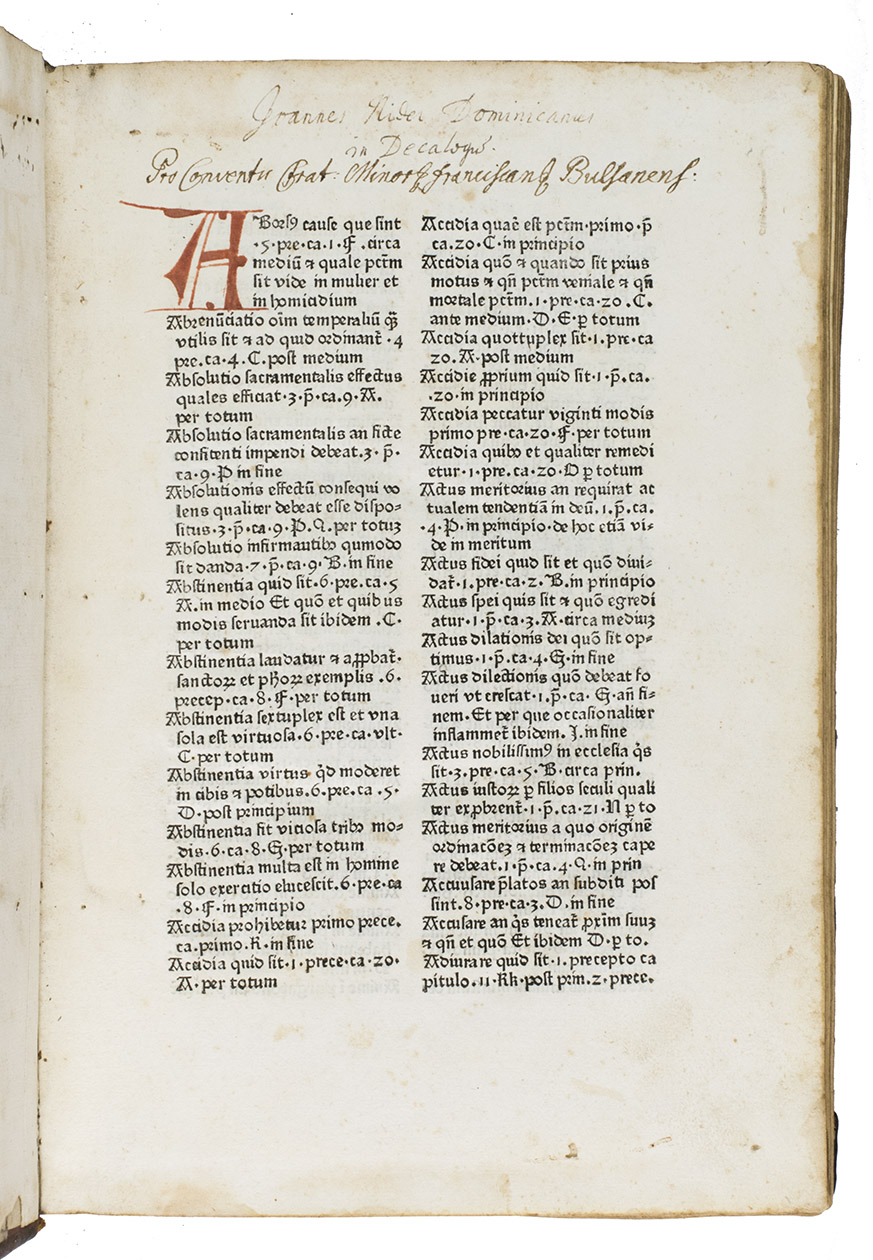 Joannes Nider Dominicanus
in Decalogū.
Pro Conventu Frat: Minorꝝ franciscanꝝ Bulsanens:
ABorsꝰ cause que sint
·5·pre·ca·1·F·circa
mediū ⁊ quale pctm̄
sit vide in mulier et
in homicidium
Abrenūciatio oīm temporaliū ꝙ̄
vtilis sit ⁊ ad quid ordinant̄ ·4
pre·ca·4·C·post medium
Absolutio sacramentalis effectus
quales efficiat·3·p̄·ca·9·A·
per totum
Absolutio sacramentalis an ficte
confitenti impendi debeat·3·p̄·
ca·9·P in fine
Absolutionis effectū consequi vo
lens qualiter debeat esse dispo⸗
situs·3·p̄·ca·9·P·Q·per totuꝫ
Absolutio infirmantibꝰ qumodo
sit danda·7·p̄·ca·9·B·in fine
Abstinentia quid sit·6·pre·ca·5
A·in medio Et quō et quibus
modis seruanda sit ibidem ·C·
per totum
Abstinentia laudatur ⁊ aꝓpbat̄·
sanctoꝝ et ph̄oꝝ exemplis ·6·
precep·ca·8·F·per totum
Abstinentia sextuplex est et vna
sola est virtuosa·6·pre·ca·vlt·
C·per totum
Abstinentia virtus q̄d moderet
in cibis ⁊ potibus·6·pre·ca·5·
D·post principium
Abstinentia fit viciosa tribꝰ mo⸗
dis·6·ca·8·G·per totum
Abstinentia multa est in homine
solo exercitio elucescit·6·pre·ca
·8·F·in principio
Accidia prohibetur primo prece·
ca·primo·K·in fine
Accidia quid sit·1·prece·ca·20·
A·per totum
Accidia quaē est pctm̄·primo·p̄
ca·20·C·in principio
Accidia quō ⁊ quando sit prius
motus ⁊ qn̄ pctm̄ veniale ⁊ qn̄
mortale pctm̄·1·pre·ca·20·C·
ante medium·D·E·ꝑ totum
Accidia quottuplex sit·1·pre·ca
20·A·post medium
Accidie ꝓprium quid sit·1·p̄·ca·
·20·in principio
Accidia peccatur viginti modis
primo pre·ca·20·F·per totum
Accidia quibꝰ et qualiter remedi
etur·1·pre·ca·20·O ꝑ totum
Actus meritorius an requirat ac
tualem tendentiā in deū·1·p̄·ca·
·4·P·in principio·de hoc etiā vi⸗
de in meritum
Actus fidei quid sit et quō diui⸗
dat̄·1·pre·ca·2·B·in principio
Actus spei quis sit ⁊ quō egredi
atur·1·p̄·ca·3·A·circa mediuꝫ
Actus dilationis dei quō sit op⸗
timus·1·p̄·ca·4·G·in fine
Actus dilectionis quō debeat fo
ueri vt crescat·1·p̄·ca· G·an̄ fi⸗
nem·Et per que occasionaliter
inflammet̄ ibidem·I·in fine
Actus nobilissimꝰ in ecclesia q̄s
sit·3·pre·ca·5·B·circa prin·
Actus iustoꝝ ꝑ filios seculi quali
ter exꝓbrent̄·1·p̄·ca·21·N ꝑ to
Actus meritorius a quo originē
ordinacōeꝫ ⁊ terminacōeꝫ cape
re debeat·1·p̄·ca·4·Q·in prin
Accuusare p̄latos an subditi pos
sint·8·pre·ca·3·D·in fine
Accusare an q̄s teneat̄ ꝓxīm suuꝫ
⁊ qn̄ et quō Et ibidem D·ꝑ to·
Adiurare quid sit·1·precepto ca
pitulo·11·Kk·post prin·2·prece·